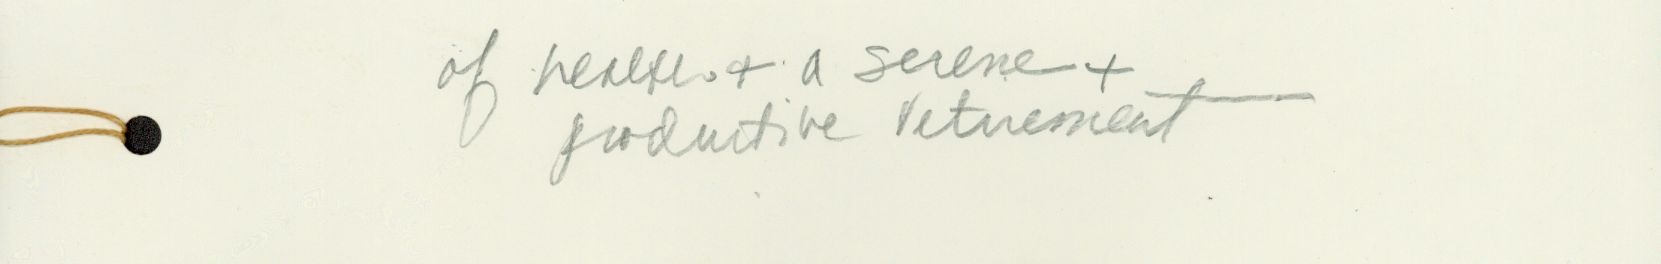 of health + a serene +
productive retirement